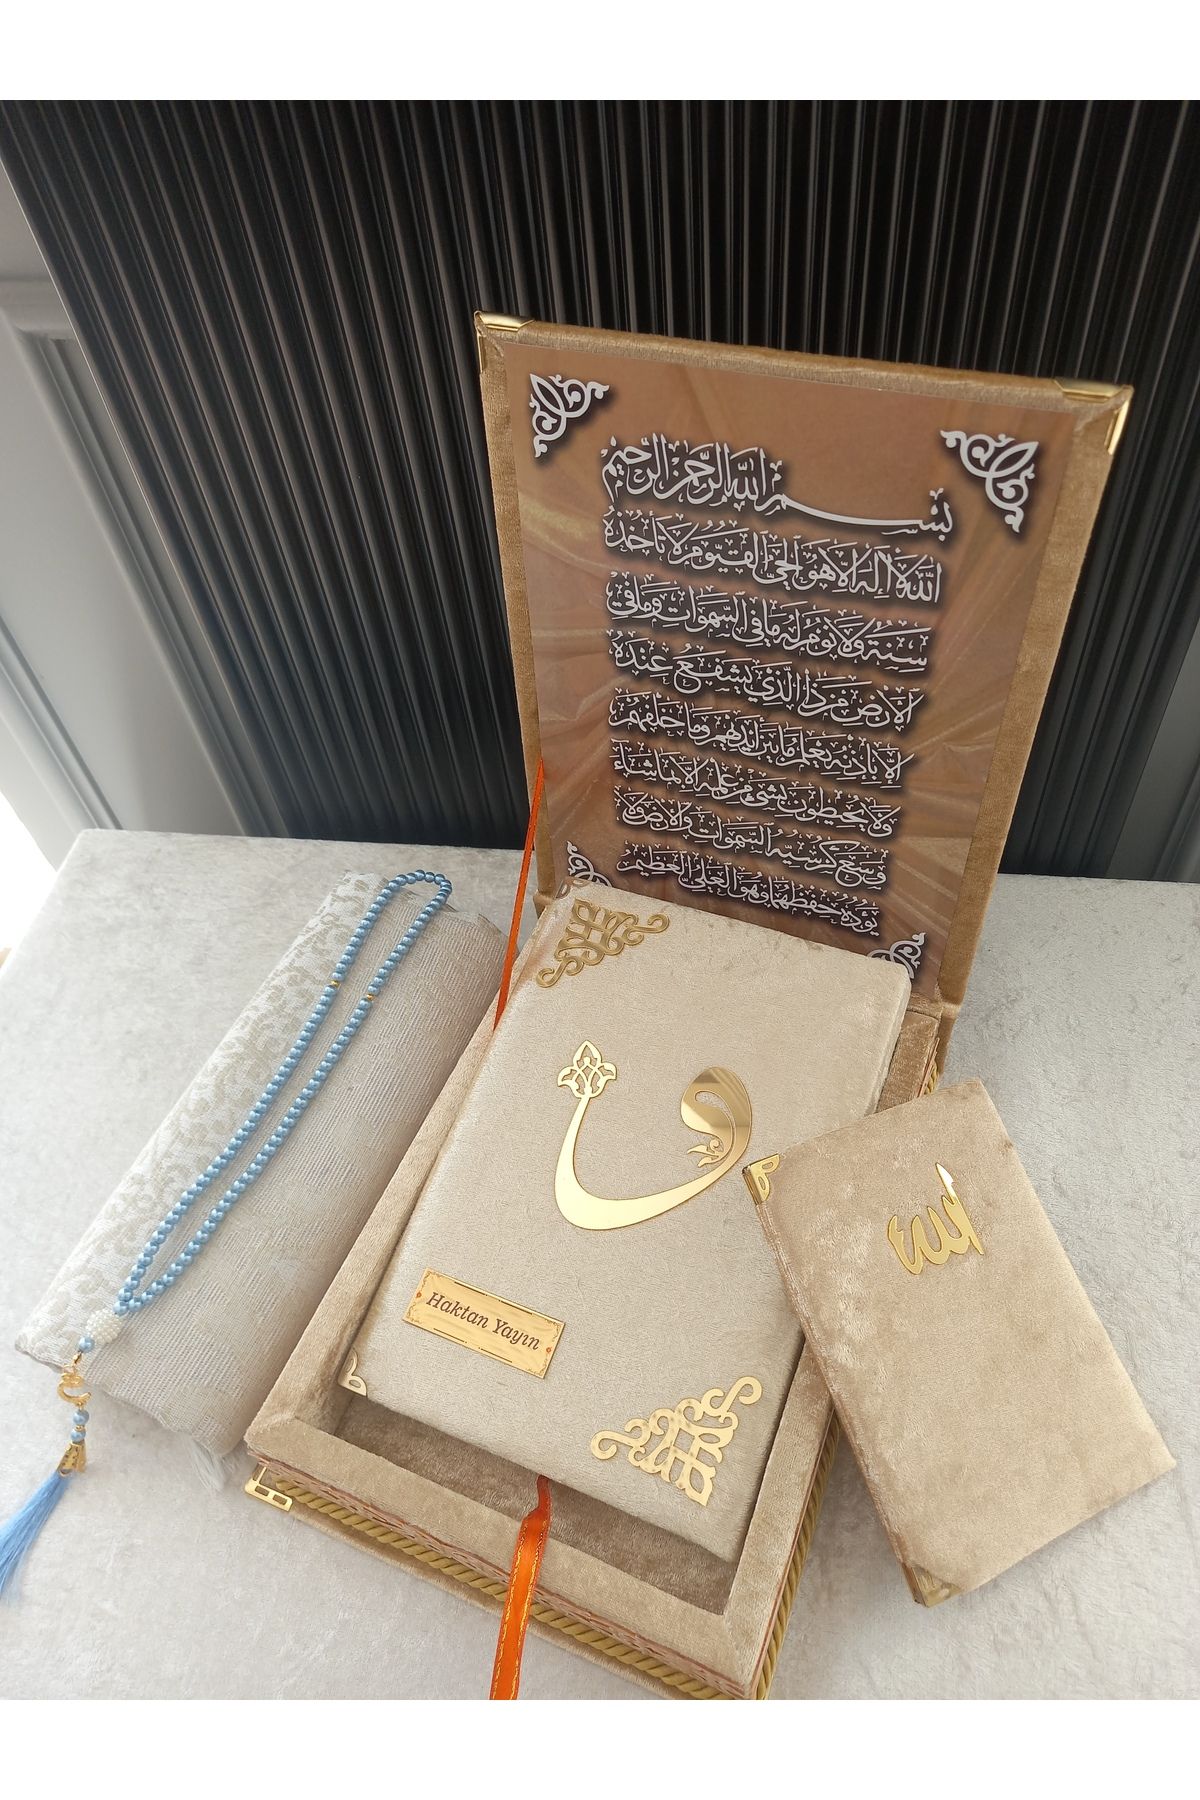 بسم الله الرحمن الرحيم
الله لا اله الا هو الحي القيوم لا تأخذه
سنة ولا نوم له ما في السموات وما في
الارض من ذا الذي يشفع عنده
الا باذنه يعلم ما بين ايديهم وما خلفهم
ولا يحيطون بشيء من علمه الا بما شاء
وسع كرسيه السموات والارض ولا
يؤده حفظهما وهو العلي العظيم
و
Haktan Yayın
الله